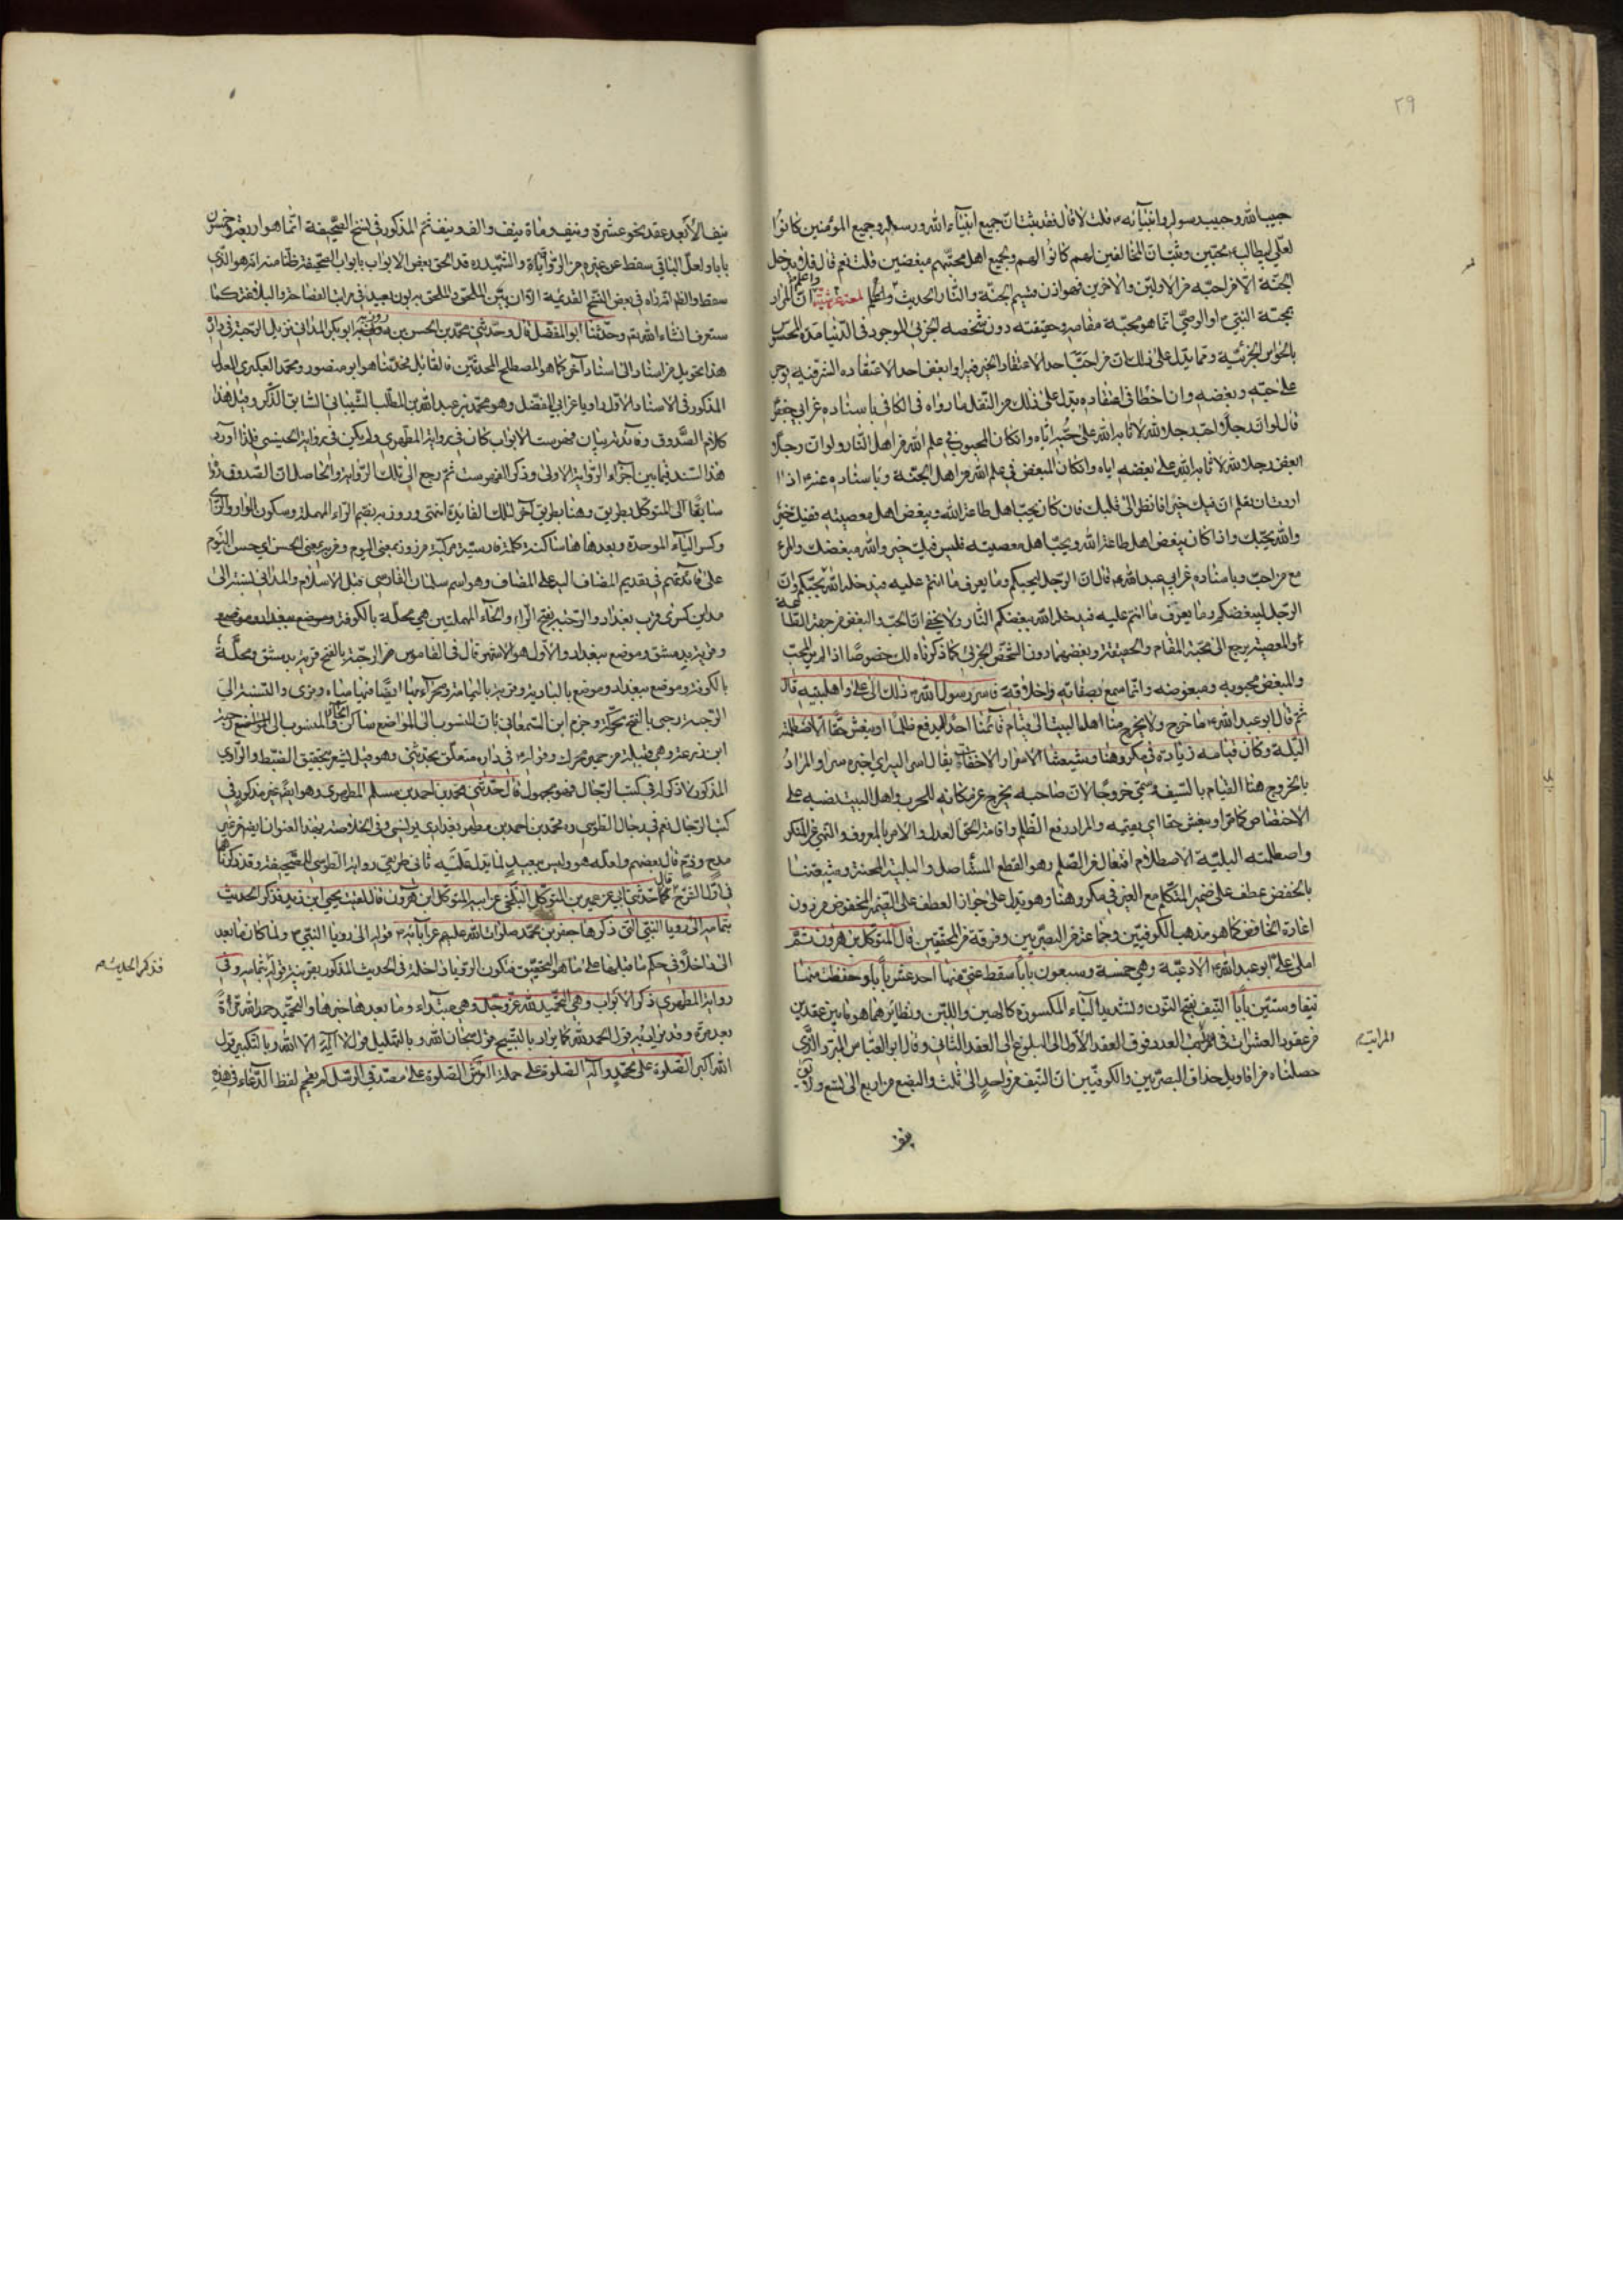 ٢٩
حبيب الله وحبيب رسوله وانبيائه قلت لا قال فقد ثبت ان جميع انبياء الله ورسله وجميع المؤمنين كانوا
لعلي بن ابي طالب محبين وثبت ان المخالفين لهم كانوا لهم ولجميع اهل محبتهم مبغضين قلت نعم قال فلا يدخل
الجنة الا من احبه من الاولين والاخرين فهو اذن قسيم الجنة والنار الحديث واعلم ان المراد
بمحبة النبي او الوصي انما هو محبة مقامه وحقيقته دون شخصه الجزئي الموجود في الدنيا مدة المحسوس
بالحواس الجزئية ومما يدل على ذلك ان من احب احدا لاعتقاد الخير فيه او ابغض احدا لاعتقاده الشر فيه يوجر
على حبه وبغضه وان اخطا في اعتقاده يدل على ذلك من النقل ما رواه في الكافي باسناده عن ابي جعفر
قال لو ان رجلا احب رجلا لله لاثابه الله على حبه اياه وان كان المحبوب في علم الله من اهل النار ولو ان رجلا
ابغض رجلا لله لاثابه الله على بغضه اياه وان كان المبغض في علم الله من اهل الجنة وباسناده عنه اذا
اردت ان تعلم ان فيك خيرا فانظر الى قلبك فان كان يحب اهل طاعة الله ويبغض اهل معصيته ففيك خير
والله يحبك واذا كان يبغض اهل طاعة الله ويحب اهل معصيته فليس فيك خير والله مبغضك والمرء
مع من احب وباسناده عن ابي عبد الله قال ان الرجل ليحبكم وما يعرف ما انتم عليه فيدخله الله بحبكم وان
الرجل ليبغضكم وما يعرف ما انتم عليه فيدخله الله ببغضكم النار ولا يخفى ان الحب والبغض من جهة الطاعة
او المعصية يرجع الى محبة المقام والحقيقة وبغضهما دون الشخص الجزئي كما ذكرناه لك خصوصا اذا لم ير المحب
والمبغض محبوبه ومبغوضه وانما سمع بصفاته واخلاقه فاسر رسول الله ذلك الى علي واهل بيته قال
ثم قال ابو عبد الله ما خرج ولا يخرج منا اهل البيت الى قيام قائمنا احد ليدفع ظلما او ينعش حقا الا اصطلمته
البلية وكان قيامه زيادة في مكروهنا وشيعتنا الاسرار الاخفاء يقال اسر اليه اي اخبره سرا والمراد
بالخروج هنا القيام بالسيف وسمي خروجا لان صاحبه يخرج عن مكانه للحرب واهل البيت نصبه على
الاختصاص كما مر او ينعش حقا اي يقيمه والمراد رفع الظلم واقامة الحق العدل والامر بالمعروف والنهي عن المنكر
واصطلمته البلية الاصطلام افتعال من الصلم وهو القطع المستاصل والبلية المحنة وشيعتنا
بالخفض عطف على ضمير المتكلم مع الغير في مكروهنا وهو يدل على جواز العطف على الضمير المخفوض من دون
اعادة الخافض كما هو مذهب الكوفيين وجماعة من البصريين وفرقة من المحققين قال المتوكل بن هرون ثم
املى علي ابو عبد الله الادعية وهي خمسة وسبعون بابا سقط عني منها احد عشر بابا وحفظت منها
نيفا وستين بابا النيف بفتح النون وتشديد الياء المكسورة كالهين واللين ونظائرهما هو ما بين عقدين
من عقود العشرات في المراتب العدد فوق العقد الاول الى البلوغ الى العقد الثاني وقال ابو العباس المبرد والذي
حصلناه من اقاويل حذاق البصريين والكوفيين ان النيف من واحد الى ثلث والبضع من اربع الى تسع ولا يق
المراتب
نيف الا بعد عقد نحو عشرة ونيف ومائة ونيف والف ونيف ثم المذكور في نسخ الصحيفة انما هو اربعة وخمسون
بابا ولعل الباقي سقط عن غيره من الرواة
سقط والظاهر انه في بعض النسخ القديمة الا ان بين الملحق والملحق به بون بعيد في مراتب الفصاحة والبلاغة كما
ستعرف انشاء الله تع وحدثنا ابو المفضل قال وحدثني محمد بن الحسن بن روزبه ابو بكر المدائني نزيل الرحبة في داره
هذا تحويل من اسناد الى اسناد آخر كما هو المصطلح المحدثين فالقائل بحدثنا هو ابو منصور ومحمد العكبري المعدل
المذكور في الاسناد الاول راويا عن ابي المفضل وهو محمد بن عبد الله بن المطلب الشيباني السابق الذكر وقيل هذا
كلام الصدوق وفائدته بيان فهرست الابواب كان في رواية المطهري ولم يكن في رواية الحسيني فلذا اورد
هذا السند فيما بين اجزاء الرواية الاولى وذكر الفهرست ثم رجع الى تلك الرواية والحاصل ان الصدوق روى
سابقا الى المتوكل بطريق وهنا بطريق آخر لتلك الفائدة انتهى وروزبه بضم الراء المهملة وسكون الواو والزاي
وكسر الباء الموحدة وبعدها هاء ساكنة كلمة فارسية مركبة من روز بمعنى اليوم ومن به بمعنى الحسن اي حسن اليوم
على قاعدتهم في تقديم المضاف اليه على المضاف وهو اسم سلمان الفارسي قبل الاسلام والمدائني نسبة الى
مداين كسرى قرب بغداد والرحبة بفتح الراء والحاء المهملتين هي محلة بالكوفة وموضع ببغداد
وقرية بدمشق وموضع ببغداد والاول هو الاشهر قال في القاموس الرحبة بالفتح قرية بدمشق ومحلة
بالكوفة وموضع ببغداد وموضع بالبادية وقرية باليمامة وصحراء بها ايضا فيها مياه وقرى والنسبة الى
الرحبة رحبي بالفتح محركة وجزم ابن السمعاني بان المنسوب الى المواضع ساكن الحاء
في داره متعلق بحدثني
المذكور في كتب الرجال فهو مجهول قال حدثني محمد بن احمد بن مسلم المطهري وهو ايضا غير مذكور في
كتب الرجال نعم في رجال الطوسي ره محمد بن احمد بن مطهر بغدادي
مدح وذم قال بعضهم ولعله هو وليس ببعيد
في اول الشرح قال حدثني ابي عن عمير بن المتوكل البلخي عن ابيه المتوكل بن هرون قال لقيت يحيى ابن زيد فذكر الحديث
بتمامه الى رؤيا النبي التي ذكرها جعفر بن محمد صلوات الله عليهم عن آبائه قوله الى رؤيا النبي ولما كان ما بعد
الى داخلا في حكم ما قبلها على ما هو التحقيق فتكون الرؤيا داخلة في الحديث المذكور بقرينة قوله بتمامه وفي
رواية المطهري ذكر الابواب وهي التحميد لله عز وجل وهي مبتداء وما بعدها خبرها والتحميد حمد الله مرة
بعد مرة وقد يراد به قول الحمد لله كما يراد بالتسبيح قول سبحان الله وبالتهليل قول لا اله الا الله وبالتكبير قول
الله اكبر الصلوة على محمد وآله الصلوة على حملة العرش الصلوة على مصدقي الرسل لم يقحم لفظ الدعاء في هذه
فذكر الحديث